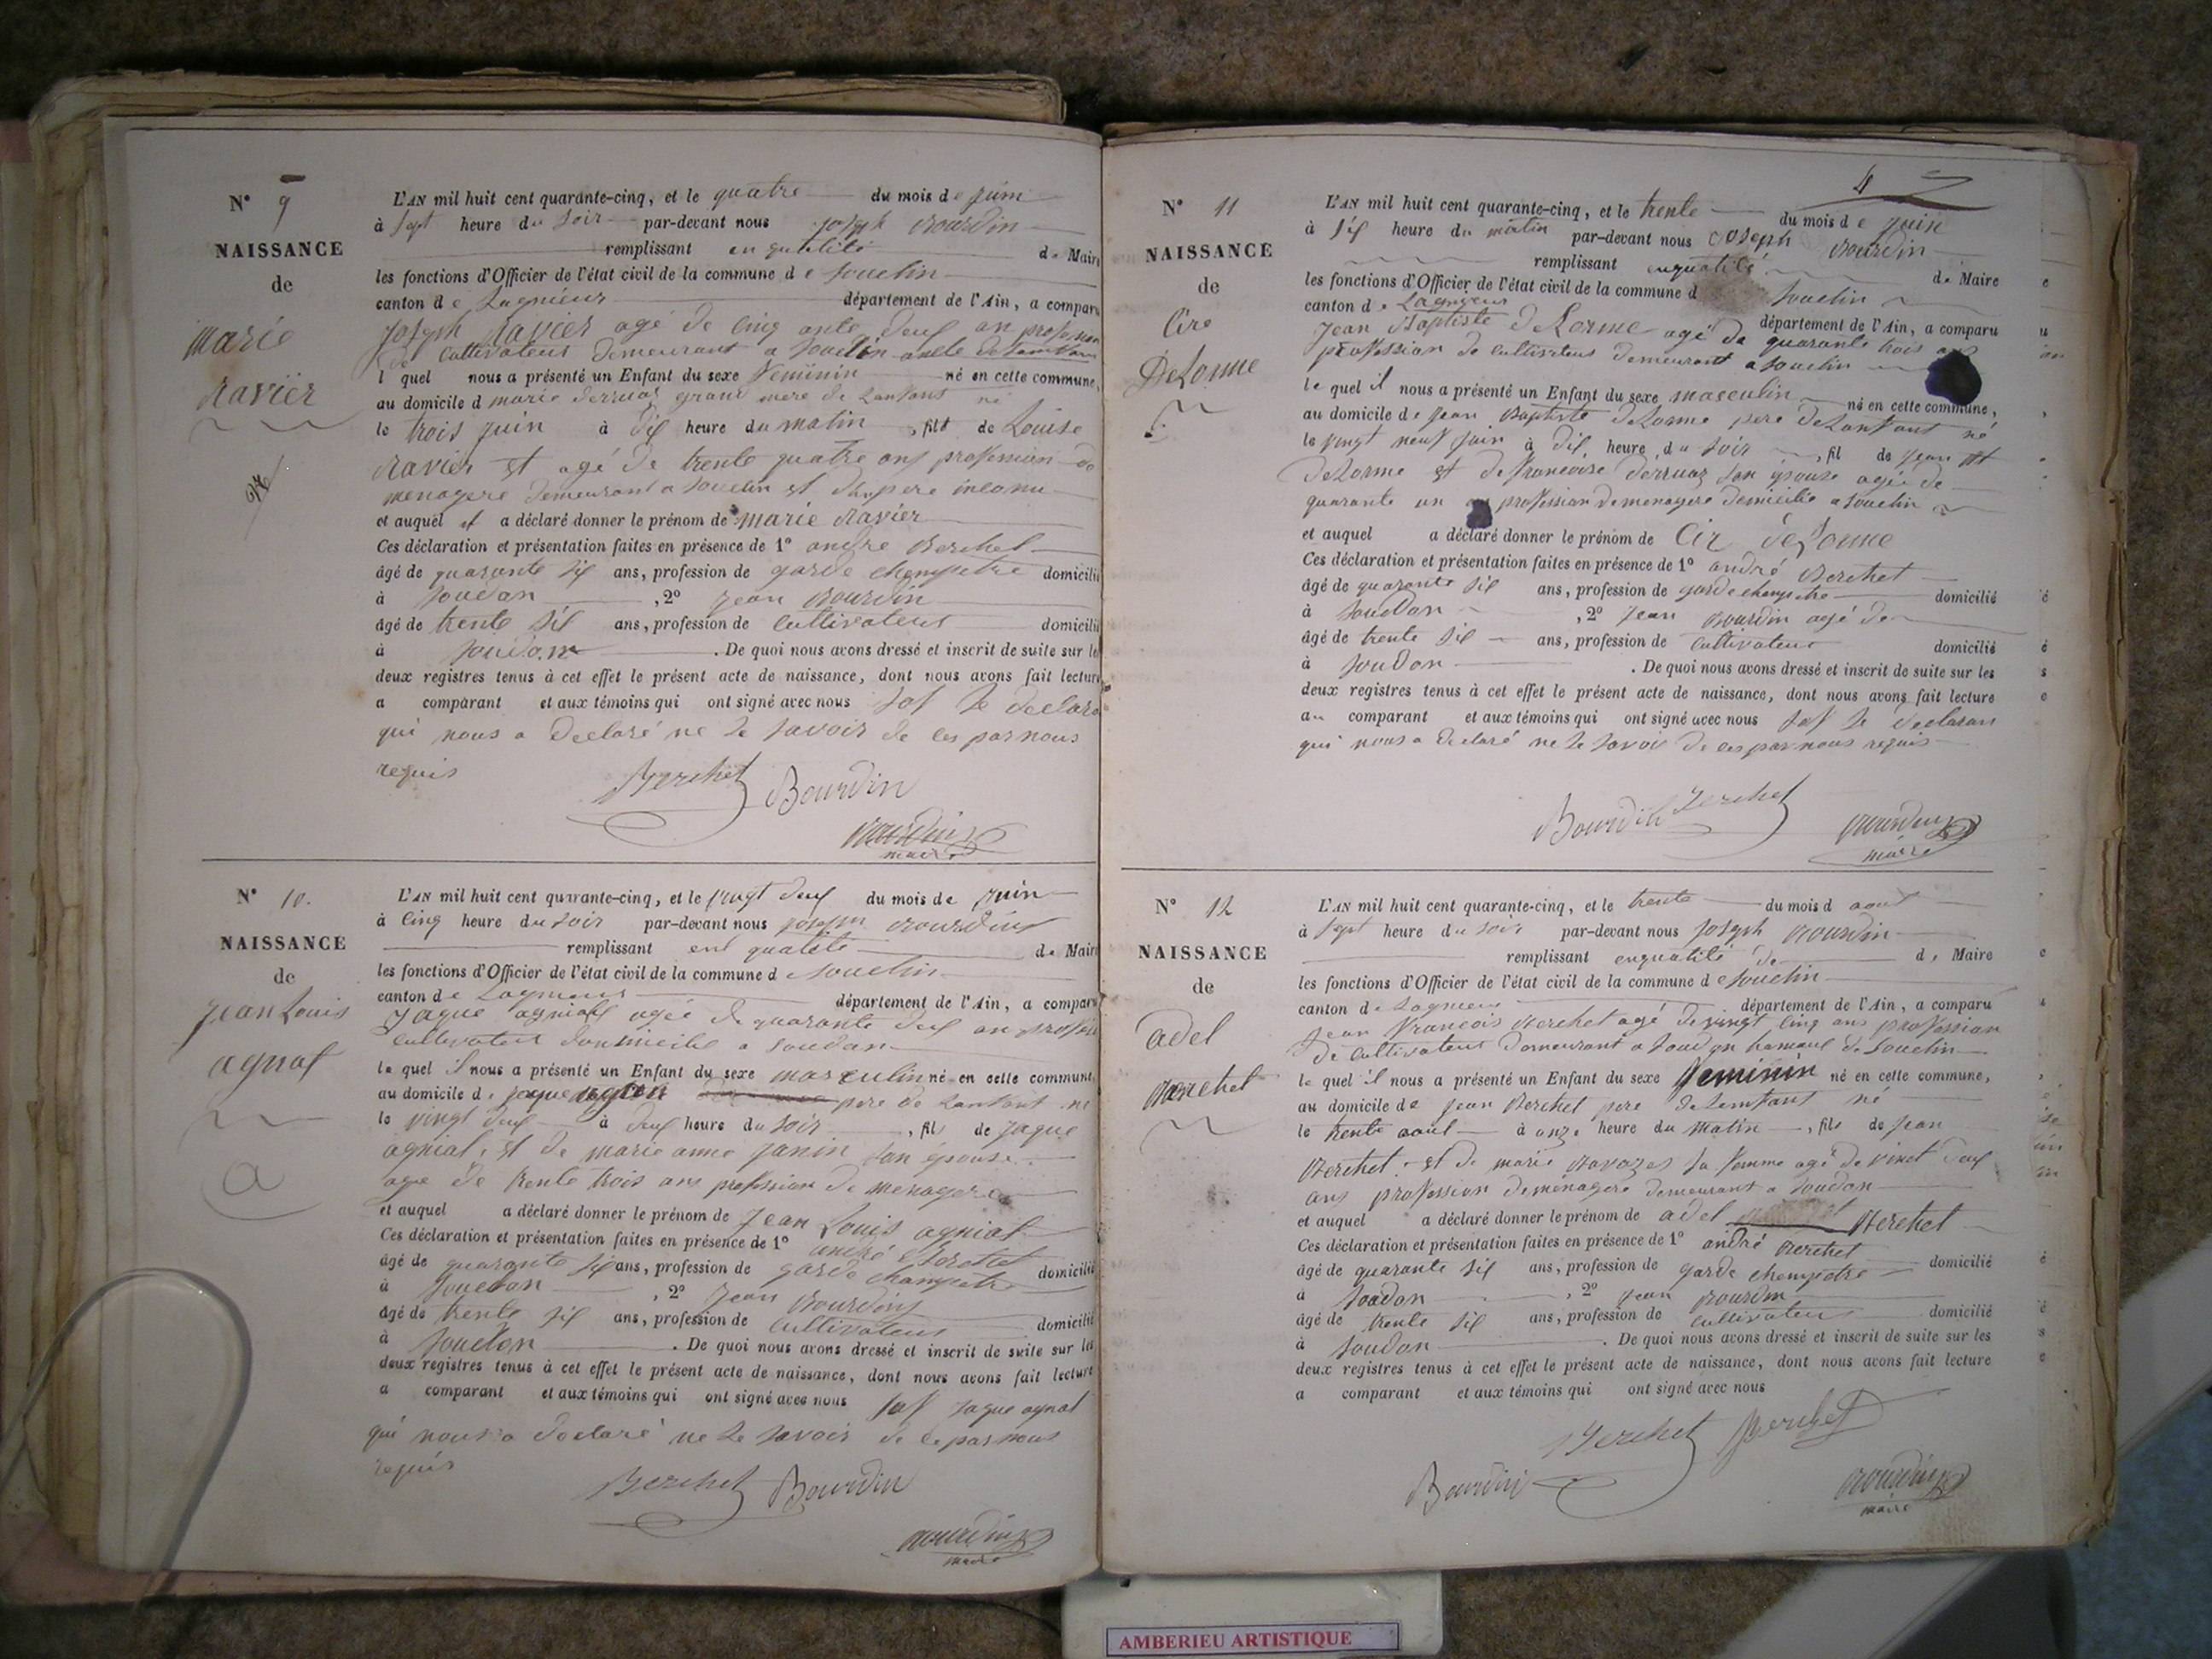 N° 9
NAISSANCE
de
Marie
Ravier
L'AN mil huit cent quarante-cinq, et le quatre du mois de juin
à sept heure du soir par-devant nous joseph Bourdin
remplissant en qualité de Maire
les fonctions d'Officier de l'état civil de la commune de souclin
canton de Lagnieux département de l'Ain, a comparu
joseph Ravier agé de cinq ante deux an profession
de cultivateur demeurant a souclin oncle de lanfant
l quel nous a présenté un Enfant du sexe feminin né en cette commune,
au domicile d marie derruaz grand mere de lanfant né
le trois juin à dix heure du matin, fils de Louise
Ravier et agé de trente quatre ans profession de
menagere demeurant a souclin et dun pere inconu
et auquel il a déclaré donner le prénom de marie Ravier
Ces déclaration et présentation faites en présence de 1° andre Berchet
âgé de quarante six ans, profession de garde champetre domicilié
à soudon, 2° jean Bourdin
âgé de trente six ans, profession de cultivateur domicilié
à soudon. De quoi nous avons dressé et inscrit de suite sur les
deux registres tenus à cet effet le présent acte de naissance, dont nous avons fait lecture
a comparant et aux témoins qui ont signé avec nous sof le declara
qui nous a declaré ne le savoir de ces par nous
requis
Berchet Bourdin
Bourdin
maire
N° 10.
NAISSANCE
de
jean Louis
agnal
a
L'AN mil huit cent quarante-cinq, et le vingt deux du mois de juin
à cinq heure du soir par-devant nous joseph Bourdin
remplissant en qualité de Maire
les fonctions d'Officier de l'état civil de la commune de souclin
canton de Lagnieux département de l'Ain, a comparu
jaque agniat agée de quarante deux an
cultivateur domicilié a soudan
le quel il nous a présenté un Enfant du sexe masculin né en cette commune,
au domicile de jaque pere de lanfant né
le vingt deux à deux heure du soir, fils de jaque
agniat, et de marie anne janin son épouse
age de trente trois ans profession de menagere
et auquel a déclaré donner le prénom de jean Louis agniat
Ces déclaration et présentation faites en présence de 1° andré Berchet
âgé de quarante six ans, profession de garde champetre domicilié
à soudon, 2° jean Bourdin
âgé de trente six ans, profession de cultivateur domicilié
à soudon. De quoi nous avons dressé et inscrit de suite sur les
deux registres tenus à cet effet le présent acte de naissance, dont nous avons fait lecture
a comparant et aux témoins qui ont signé avec nous sof jaque agnal
qui nous a declaré ne le savoir de ce par nous
requis
Berchet Bourdin
Bourdin
maire
4
N° 11
NAISSANCE
de
Cire
DeLorme
L'AN mil huit cent quarante-cinq, et le trente du mois de juin
à six heure du matin par-devant nous Joseph Bourdin
remplissant enqualité de Maire
les fonctions d'Officier de l'état civil de la commune d souclin
canton de Lagnieux département de l'Ain, a comparu
jean Baptiste deLorme agé de quarante trois ans
profession de cultivateur demeurant a souclin
le quel il nous a présenté un Enfant du sexe masculin né en cette commune,
au domicile de jean Baptiste deLorme pere de Lanfant né
le vingt neuf juin à dix heure du soir, fil de jean Bt
deLorme et de francoise derruaz son épouse agée de
quarante un profession de menagere domicilie a souclin
et auquel a déclaré donner le prénom de Cir deLorme
Ces déclaration et présentation faites en présence de 1° andré Berchet
âgé de quarante six ans, profession de garde champetre domicilié
à soudon, 2° jean Bourdin agé de
âgé de trente six ans, profession de cultivateur domicilié
à soudon. De quoi nous avons dressé et inscrit de suite sur les
deux registres tenus à cet effet le présent acte de naissance, dont nous avons fait lecture
au comparant et aux témoins qui ont signé avec nous sof le declaran
qui nous a declaré ne le savoir de ces par nous requis
Bourdin Berchet
Bourdin
maire
N° 12
NAISSANCE
de
adel
Berchet
L'AN mil huit cent quarante-cinq, et le trente du mois d aout
à sept heure du soir par-devant nous joseph Bourdin
remplissant enqualité de de Maire
les fonctions d'Officier de l'état civil de la commune de souclin
canton de Lagnieu département de l'Ain, a comparu
jean francois Berchet agé de vingt cinq ans profession
de cultivateur demeurant a soudon hamaux de souclin
le quel il nous a présenté un Enfant du sexe feminin né en cette commune,
au domicile de jean Berchet pere de lenfant né
le trente aout à onze heure du matin, fils de jean
Berchet et de marie sa femme agé de vinct deux
ans profession de ménagere demeurant a soudon
et auquel a déclaré donner le prénom de adel Berchet
Ces déclaration et présentation faites en présence de 1° andré Berchet
âgé de quarante six ans, profession de garde champetre domicilié
à soudon, 2° jean Bourdin
âgé de trente six ans, profession de cultivateur domicilié
à soudon. De quoi nous avons dressé et inscrit de suite sur les
deux registres tenus à cet effet le présent acte de naissance, dont nous avons fait lecture
a comparant et aux témoins qui ont signé avec nous
Berchet Berchet
Bourdin
Bourdin
maire
AMBERIEU ARTISTIQUE